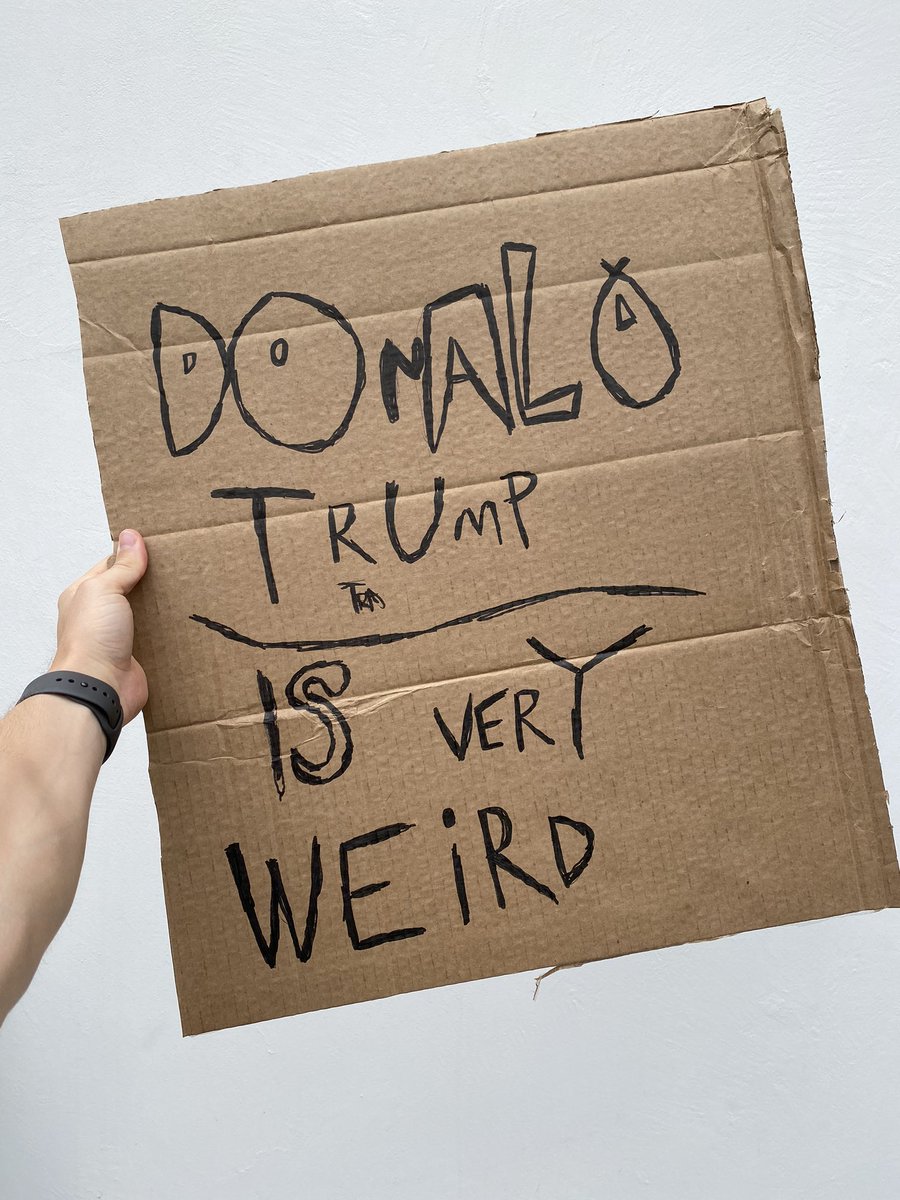 DONALD
TRUMP
IS VERY
WEIRD